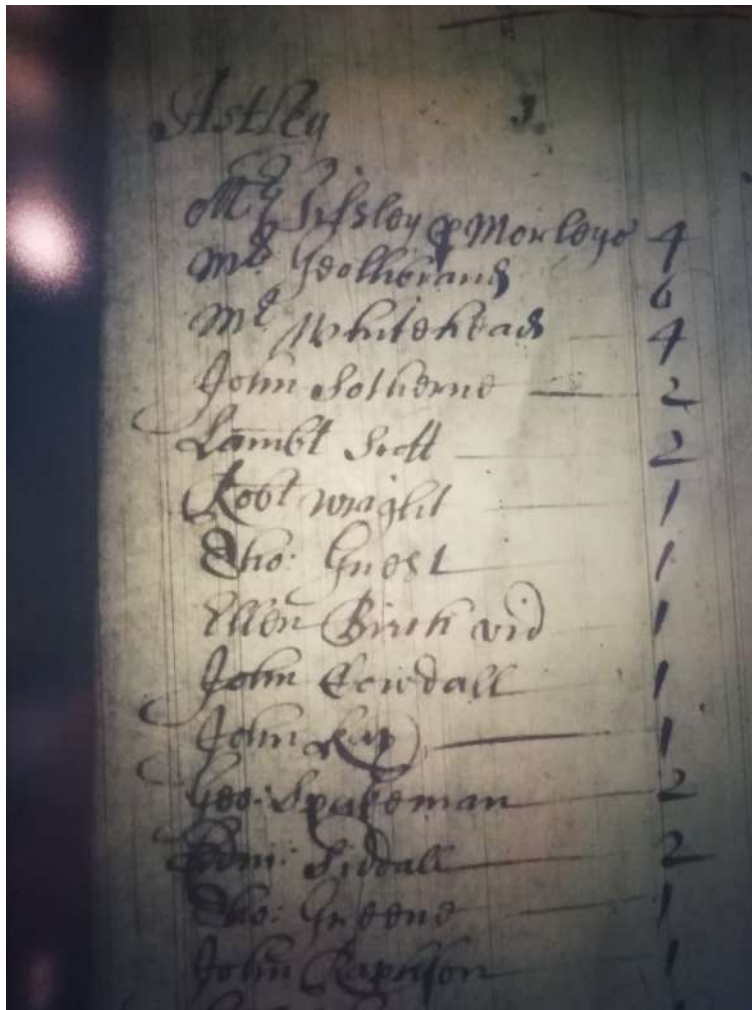 Astley
Mr Tildsley p Morleys 4
Mr Sothernand 6
Mr Whitehead 4
John Sotherne 2
Lambt Scott 2
Robt Wright 1
Tho: Guest 1
Ellen Birch vid 1
John Cowdall 1
John Kay 1
Geo: Spakeman 2
Edm: Siddall 2
Tho: Greene 1
John Rapison 1